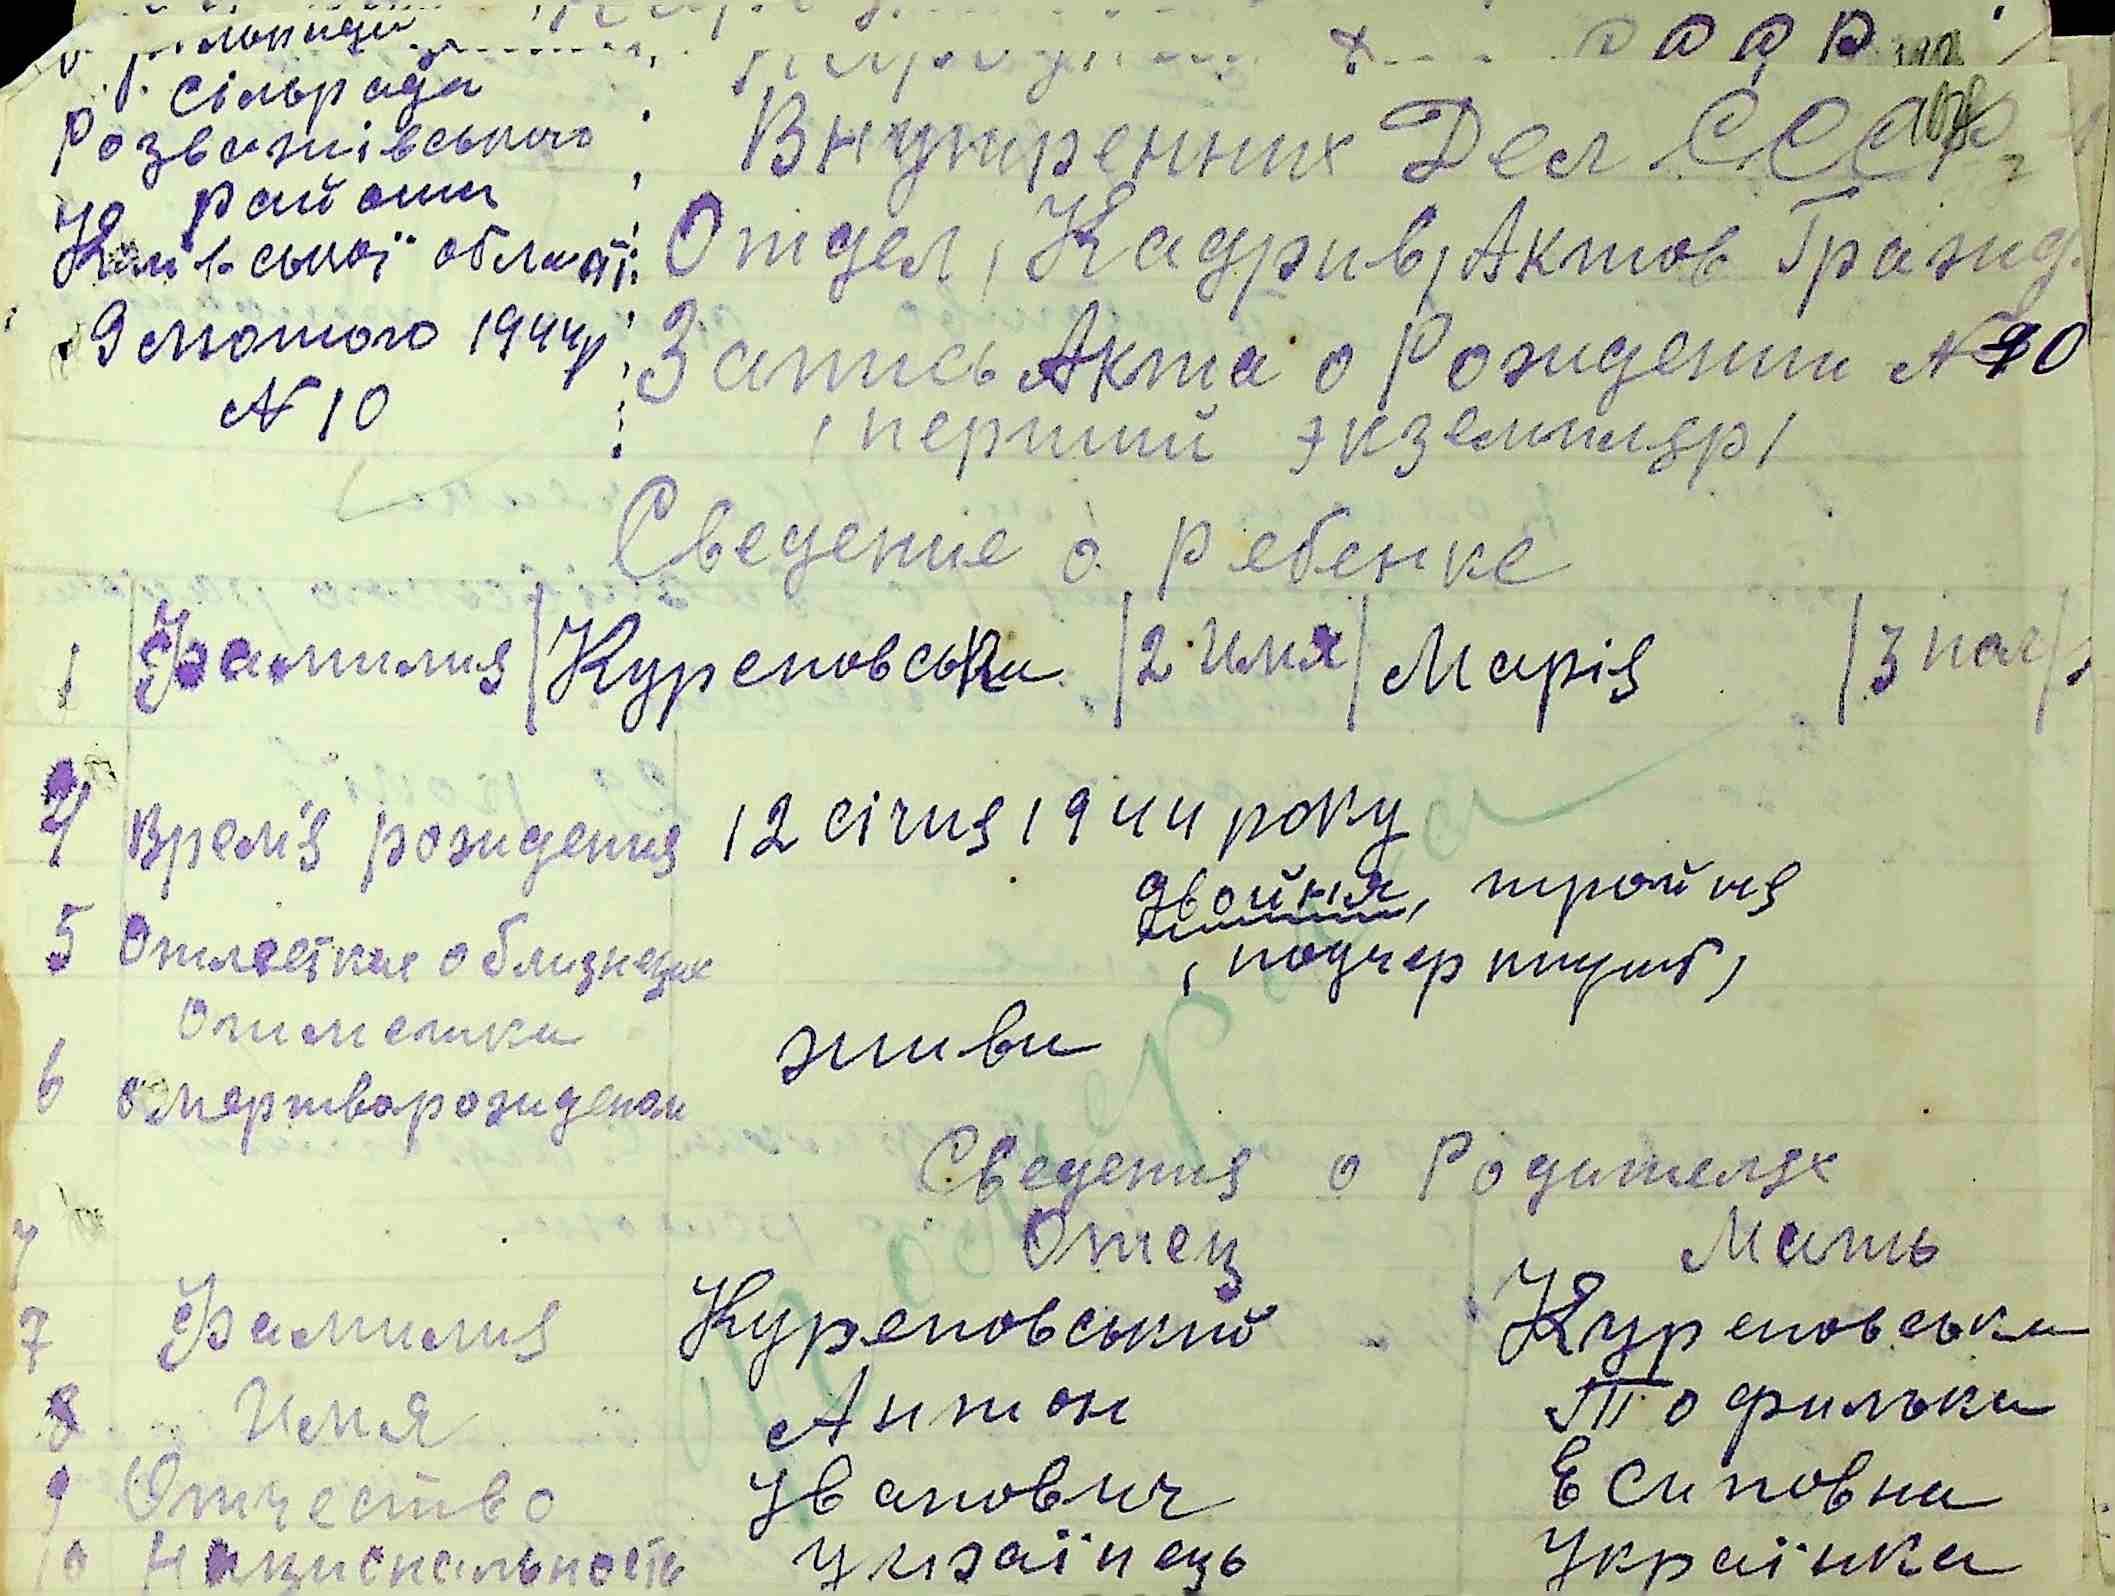 сільрада
Розважівського
району
Київської області
9 лютого 1944 р
N 10
Внутренних Дел СССР
Отдел, Кадрив, Актов Гражд.
Запись Акта о Рождении N 10
, перший экземпляр,
Сведение о ребенке
1 Фамилия | Куреновська | 2 Имя | Марія | 3 пол
4 Время рождения 12 січня 1944 року
двойня, тройня
5 Отметкая о близнецах , подчеркнуть,
Отметка
6 о мертворождении живи
Сведения о Родителях
7 Отец Мать
7 Фамилия Куреновський Куреновська
8 Имя Антон Тофилька
9 Отчество Іванович Есиповна
10 Национальность Українець Українка